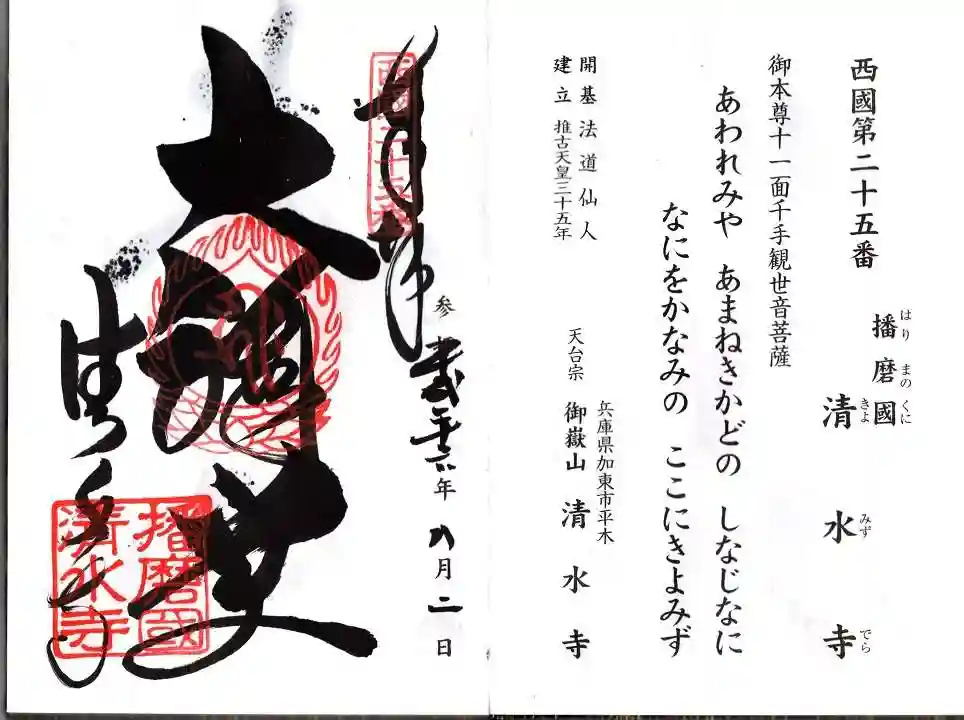 西國第二十五番
播磨國
はり まの くに
清水寺
きよ みず でら
御本尊十一面千手観世音菩薩
あわれみや あまねきかどの しなじなに
なにをかなみの ここにきよみず
開基 法道仙人
建立 推古天皇三十五年
兵庫県加東市平木
天台宗 御嶽山 清水寺
奉拝
西國二十五番
参 年 八月二日
大悲
清水寺
播磨國
清水寺